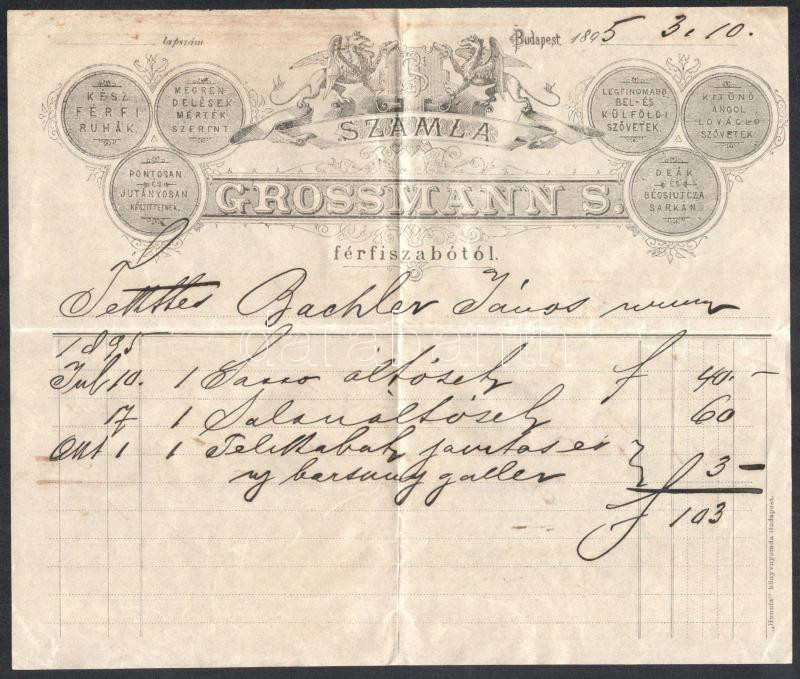 lapszám
Budapest, 1895 3.10.
KÉSZ
FÉRFI
RUHÁK.
MEGREN-
DELÉSEK
MÉRTÉK
SZERINT.
PONTOSAN
ÉS
JUTÁNYOSAN
KÉSZITTETNEK.
GS
SZÁMLA
LEGFINOMABB
BEL- ÉS
KÜLFÖLDI
SZÖVETEK.
KITÜNŐ
ANGOL
LOVAGLÓ
SZÖVETEK.
DEÁK
ÉS
BÉCSIUTCZA
SARKÁN
GROSSMANN S.
férfiszabótól.
Bachler János
darabanth
1895
Jul 10. 1 öltözek f 40.-
17 1 Salonöltözek 60
Okt 1 1 Telikabat javitas es
uj barsony galler 3-
f 103
„Hunnia" könyvnyomda Budapest.